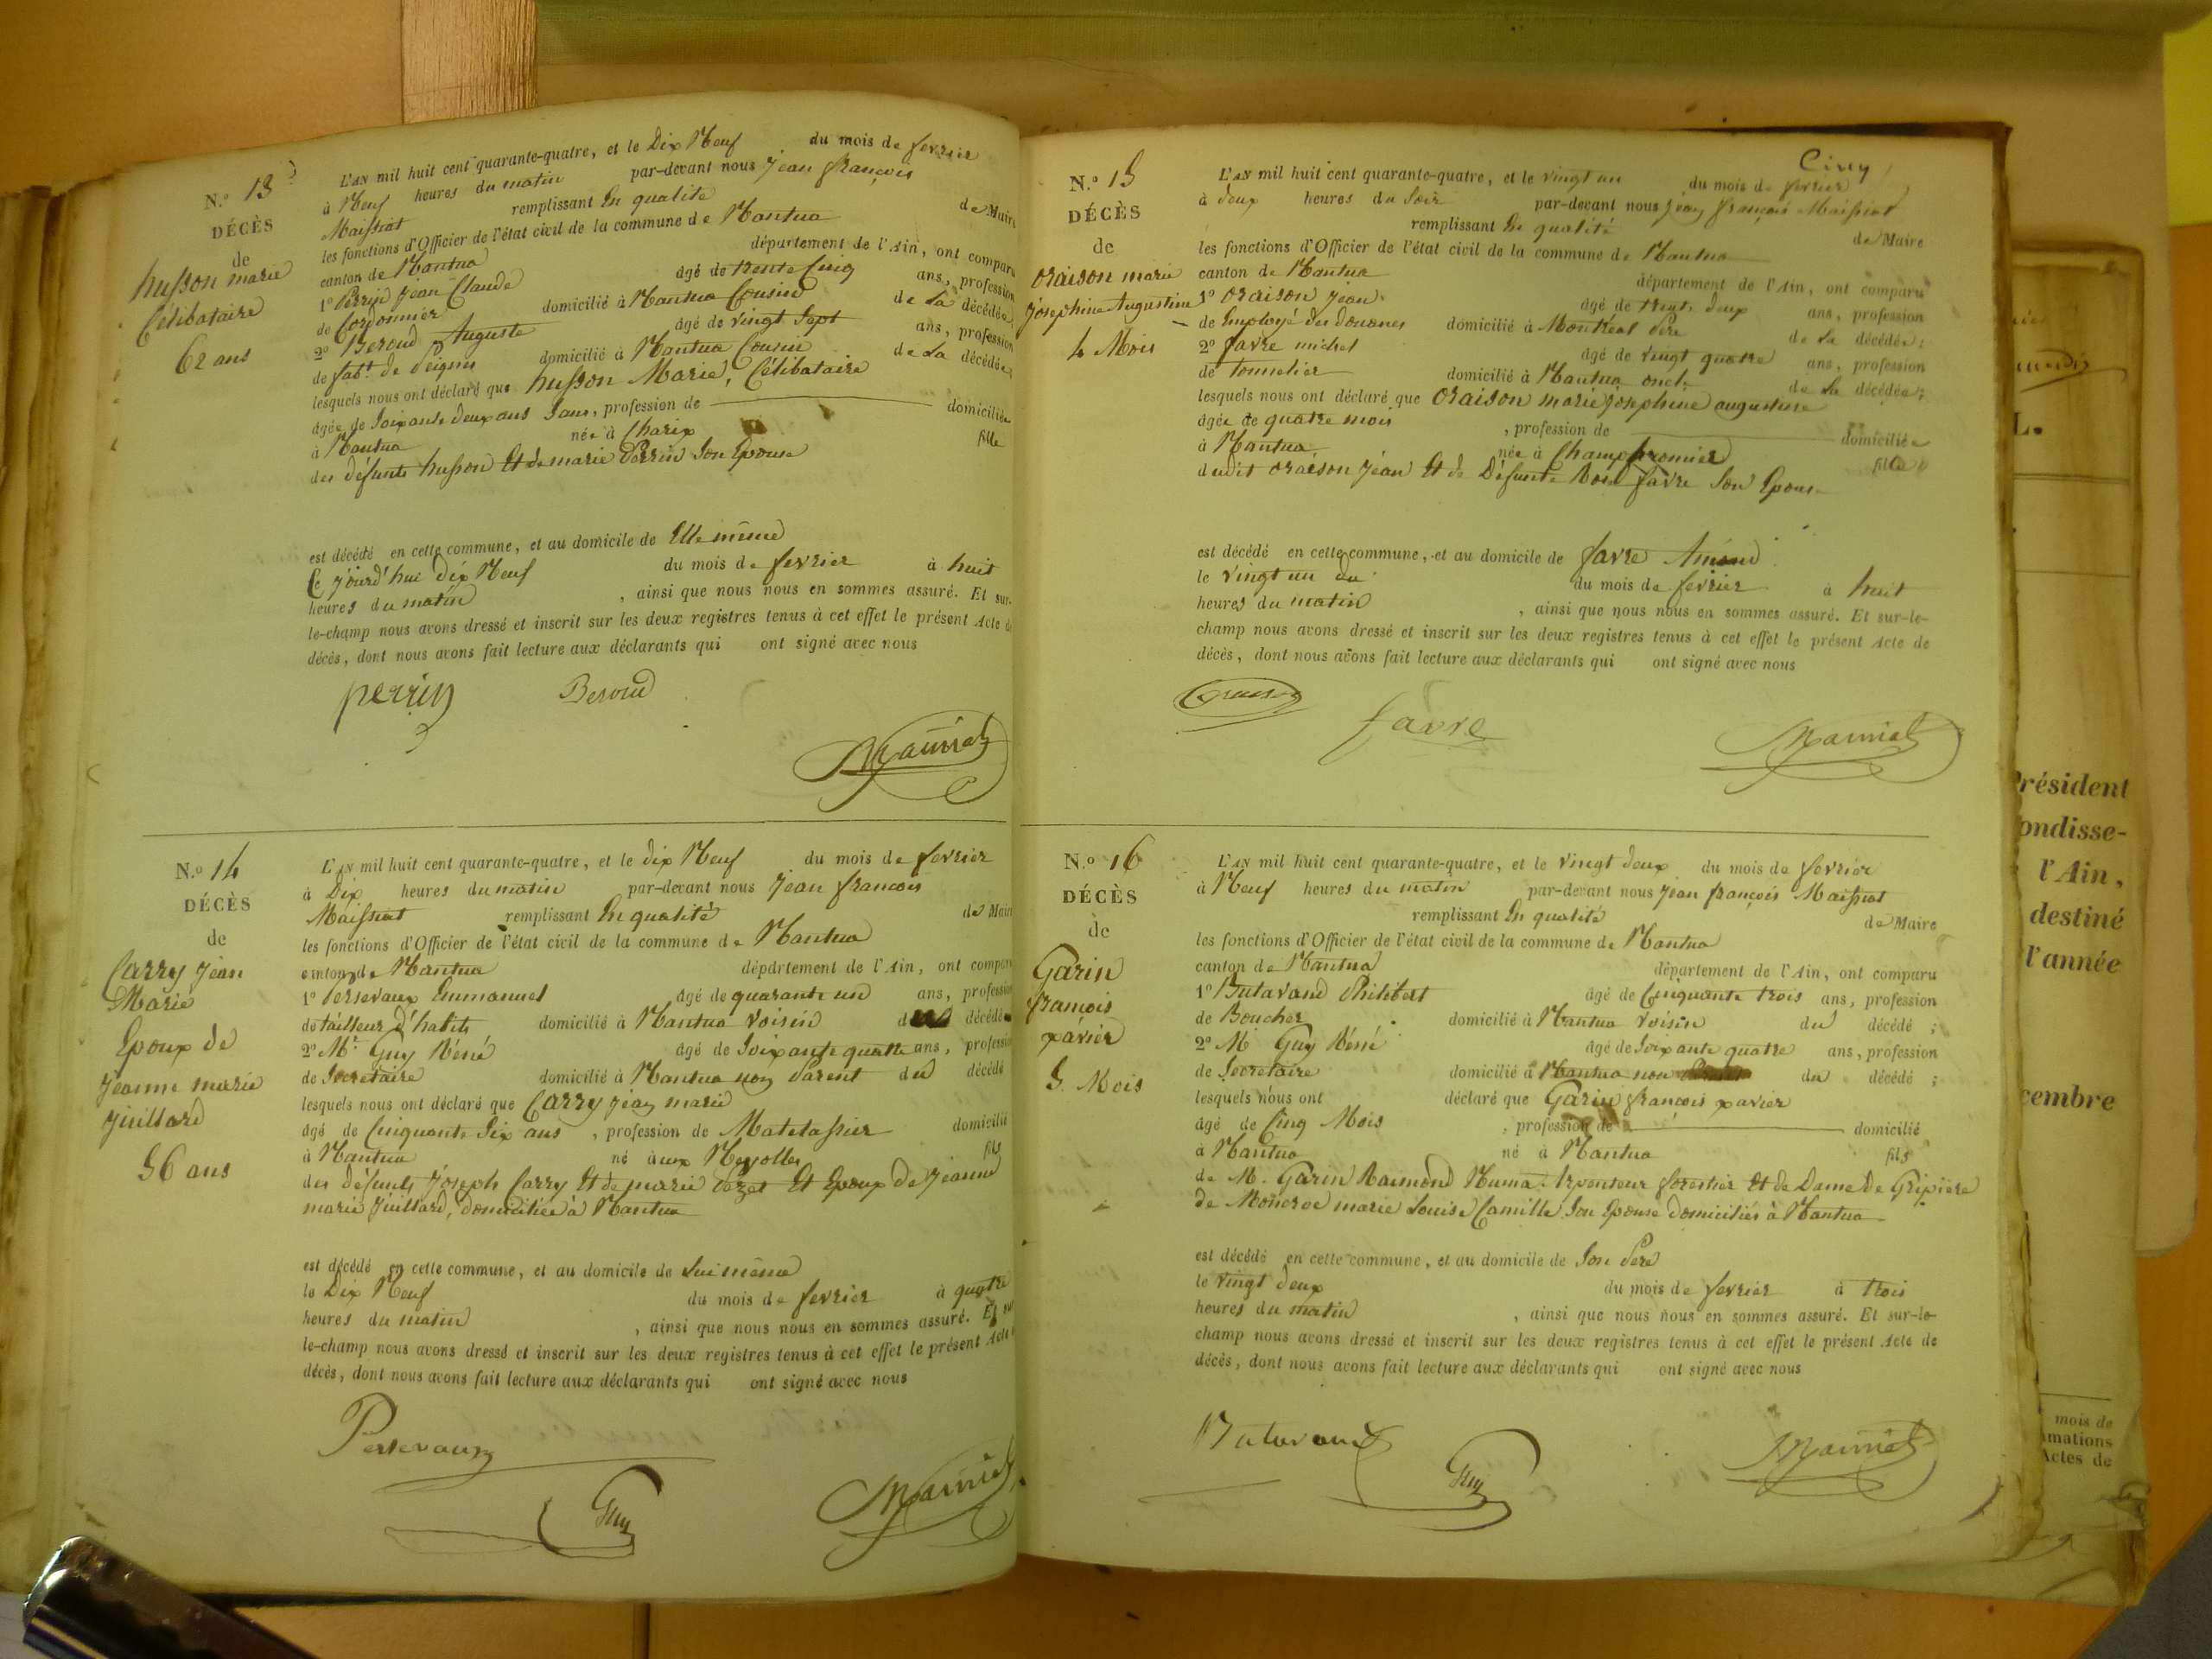 N.° 13
DÉCÈS
de
husson marie
Célibataire
62 ans
L'AN mil huit cent quarante-quatre, et le Dix Neuf du mois de fevrier
à Neuf heures du matin par-devant nous jean françois
Maissiat remplissant En qualité de Maire
les fonctions d'Officier de l'état civil de la commune de Nantua
canton de Nantua département de l'Ain, ont comparu
1° Perrin jean Claude âgé de trente Cinq ans, profession
de Cordonnier domicilié à Nantua Cousin de La décédée
2° Beroud Auguste âgé de vingt Sept ans, profession
de fabt. de Peignes domicilié à Nantua Cousin de La décédée
lesquels nous ont déclaré que husson Marie, Célibataire
âgée de Soixante deux ans Sans, profession de domiciliée
à Nantua née à Charix fille
des défunts husson Et de marie Perrin Son Epouse
est décédé en cette commune, et au domicile de Elle même
Ce jourd'hui dix Neuf du mois de fevrier à huit
heures du matin , ainsi que nous nous en sommes assuré. Et sur-
le-champ nous avons dressé et inscrit sur les deux registres tenus à cet effet le présent Acte de
décès, dont nous avons fait lecture aux déclarants qui ont signé avec nous
perrin Beroud
Maissiat
N.° 14
DÉCÈS
de
Carry jean
Marie
Epoux de
jeanne marie
juillard
56 ans
L'AN mil huit cent quarante-quatre, et le dix Neuf du mois de fevrier
à Dix heures du matin par-devant nous jean francois
Maissiat remplissant En qualité de Maire
les fonctions d'Officier de l'état civil de la commune de Nantua
canton de Nantua département de l'Ain, ont comparu
1° Persevaux Emmanuel âgé de quarante un ans, profession
de tailleur d'habits domicilié à Nantua voisin décédé
2° Mr. Guy Réné âgé de Soixante quatre ans, profession
de Secretaire domicilié à Nantua non Parent du décédé
lesquels nous ont déclaré que Carry jean marie
âgé de Cinquante Six ans , profession de Matelassier domicilié
à Nantua né aux Neyrolles fils
des défunts joseph Carry Et de marie Et Epoux de jeanne
marie juillard, domiciliée à Nantua
est décédé en cette commune, et au domicile de Lui même
le Dix Neuf du mois de fevrier à quatre
heures du matin , ainsi que nous nous en sommes assuré. Et sur-
le-champ nous avons dressé et inscrit sur les deux registres tenus à cet effet le présent Acte
décès, dont nous avons fait lecture aux déclarants qui ont signé avec nous
Persevaux
Guy
Maissiat
Cinq
N.° 15
DÉCÈS
de
Oraison marie
josephine Augustine
4 Mois
L'AN mil huit cent quarante-quatre, et le vingt un du mois de fevrier
à deux heures du Soir par-devant nous jean françois Maissiat
remplissant En qualité de Maire
les fonctions d'Officier de l'état civil de la commune de Nantua
canton de Nantua département de l'Ain, ont comparu
1° Oraison jean âgé de trente deux ans, profession
de Employé des douanes domicilié à Montréal Père de La décédée;
2° favre michel âgé de vingt quatre ans, profession
de tonnelier domicilié à Nantua oncle de La décédée;
lesquels nous ont déclaré que Oraison marie josephine augustine
âgée de quatre mois , profession de domiciliée
à Nantua née à Champfromier fille
dudit Oraison jean Et de Défunte Rose favre Son Epouse
est décédé en cette commune, et au domicile de favre Amand
le vingt un du du mois de fevrier à huit
heures du matin , ainsi que nous nous en sommes assuré. Et sur-le-
champ nous avons dressé et inscrit sur les deux registres tenus à cet effet le présent Acte de
décès, dont nous avons fait lecture aux déclarants qui ont signé avec nous
favre
Maissiat
N.° 16
DÉCÈS
de
Garin
francois
xavier
5. Mois
L'AN mil huit cent quarante-quatre, et le vingt deux du mois de fevrier
à Neuf heures du matin par-devant nous jean françois Maissiat
remplissant En qualité de Maire
les fonctions d'Officier de l'état civil de la commune de Nantua
canton de Nantua département de l'Ain, ont comparu
1° Butavand Philibert âgé de Cinquante trois ans, profession
de Boucher domicilié à Nantua voisin du décédé ;
2° M Guy Réné âgé de Soixante quatre ans, profession
de Secretaire domicilié à Nantua non du décédé ;
lesquels nous ont déclaré que Garin francois xavier
âgé de Cinq Mois , profession de domicilié
à Nantua né à Nantua fils
de M. Garin Raimond Numa. Arpenteur forestier Et de Dame De Gripière
de Moncroc marie Louise Camille Son Epouse domiciliés à Nantua
est décédé en cette commune, et au domicile de Son Père
le vingt deux du mois de fevrier à trois
heures du matin , ainsi que nous nous en sommes assuré. Et sur-le-
champ nous avons dressé et inscrit sur les deux registres tenus à cet effet le présent Acte de
décès, dont nous avons fait lecture aux déclarants qui ont signé avec nous
Butavand
Guy
Maissiat
L.
Président
ondisse-
l'Ain,
destiné
l'année
cembre
mois de
mations
Actes de